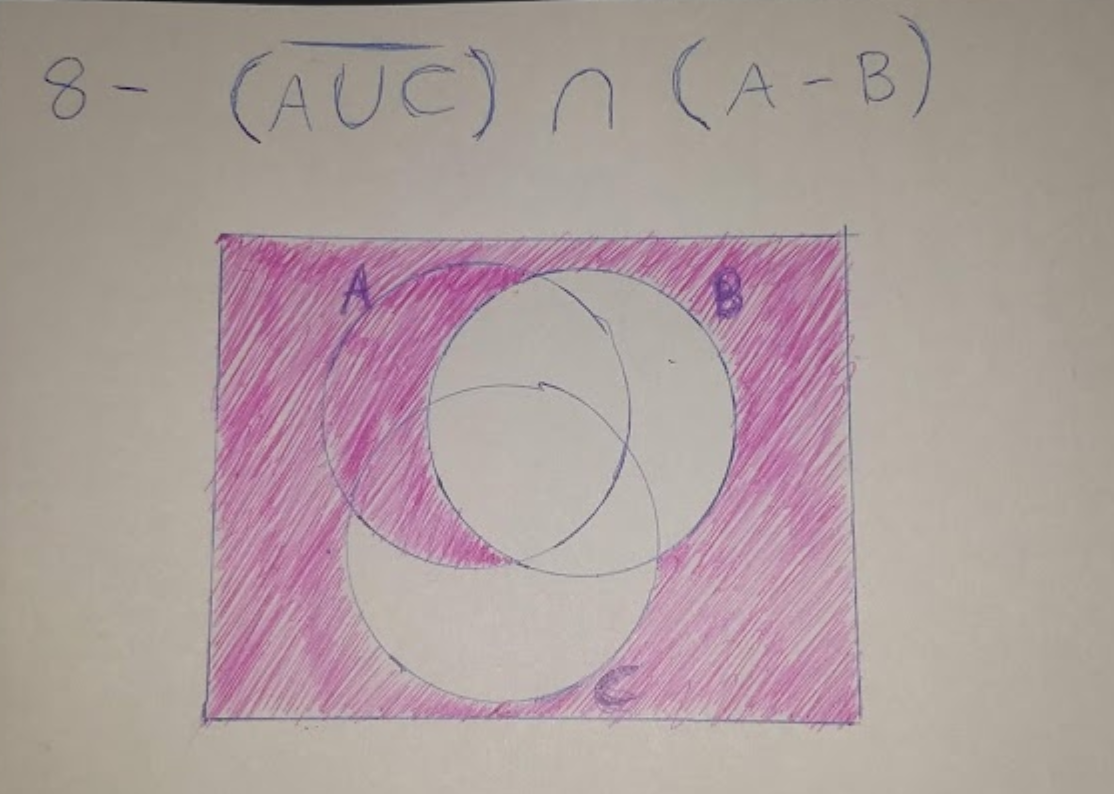 8- (A̅U̅C̅) ∩ (A-B)
A B
C